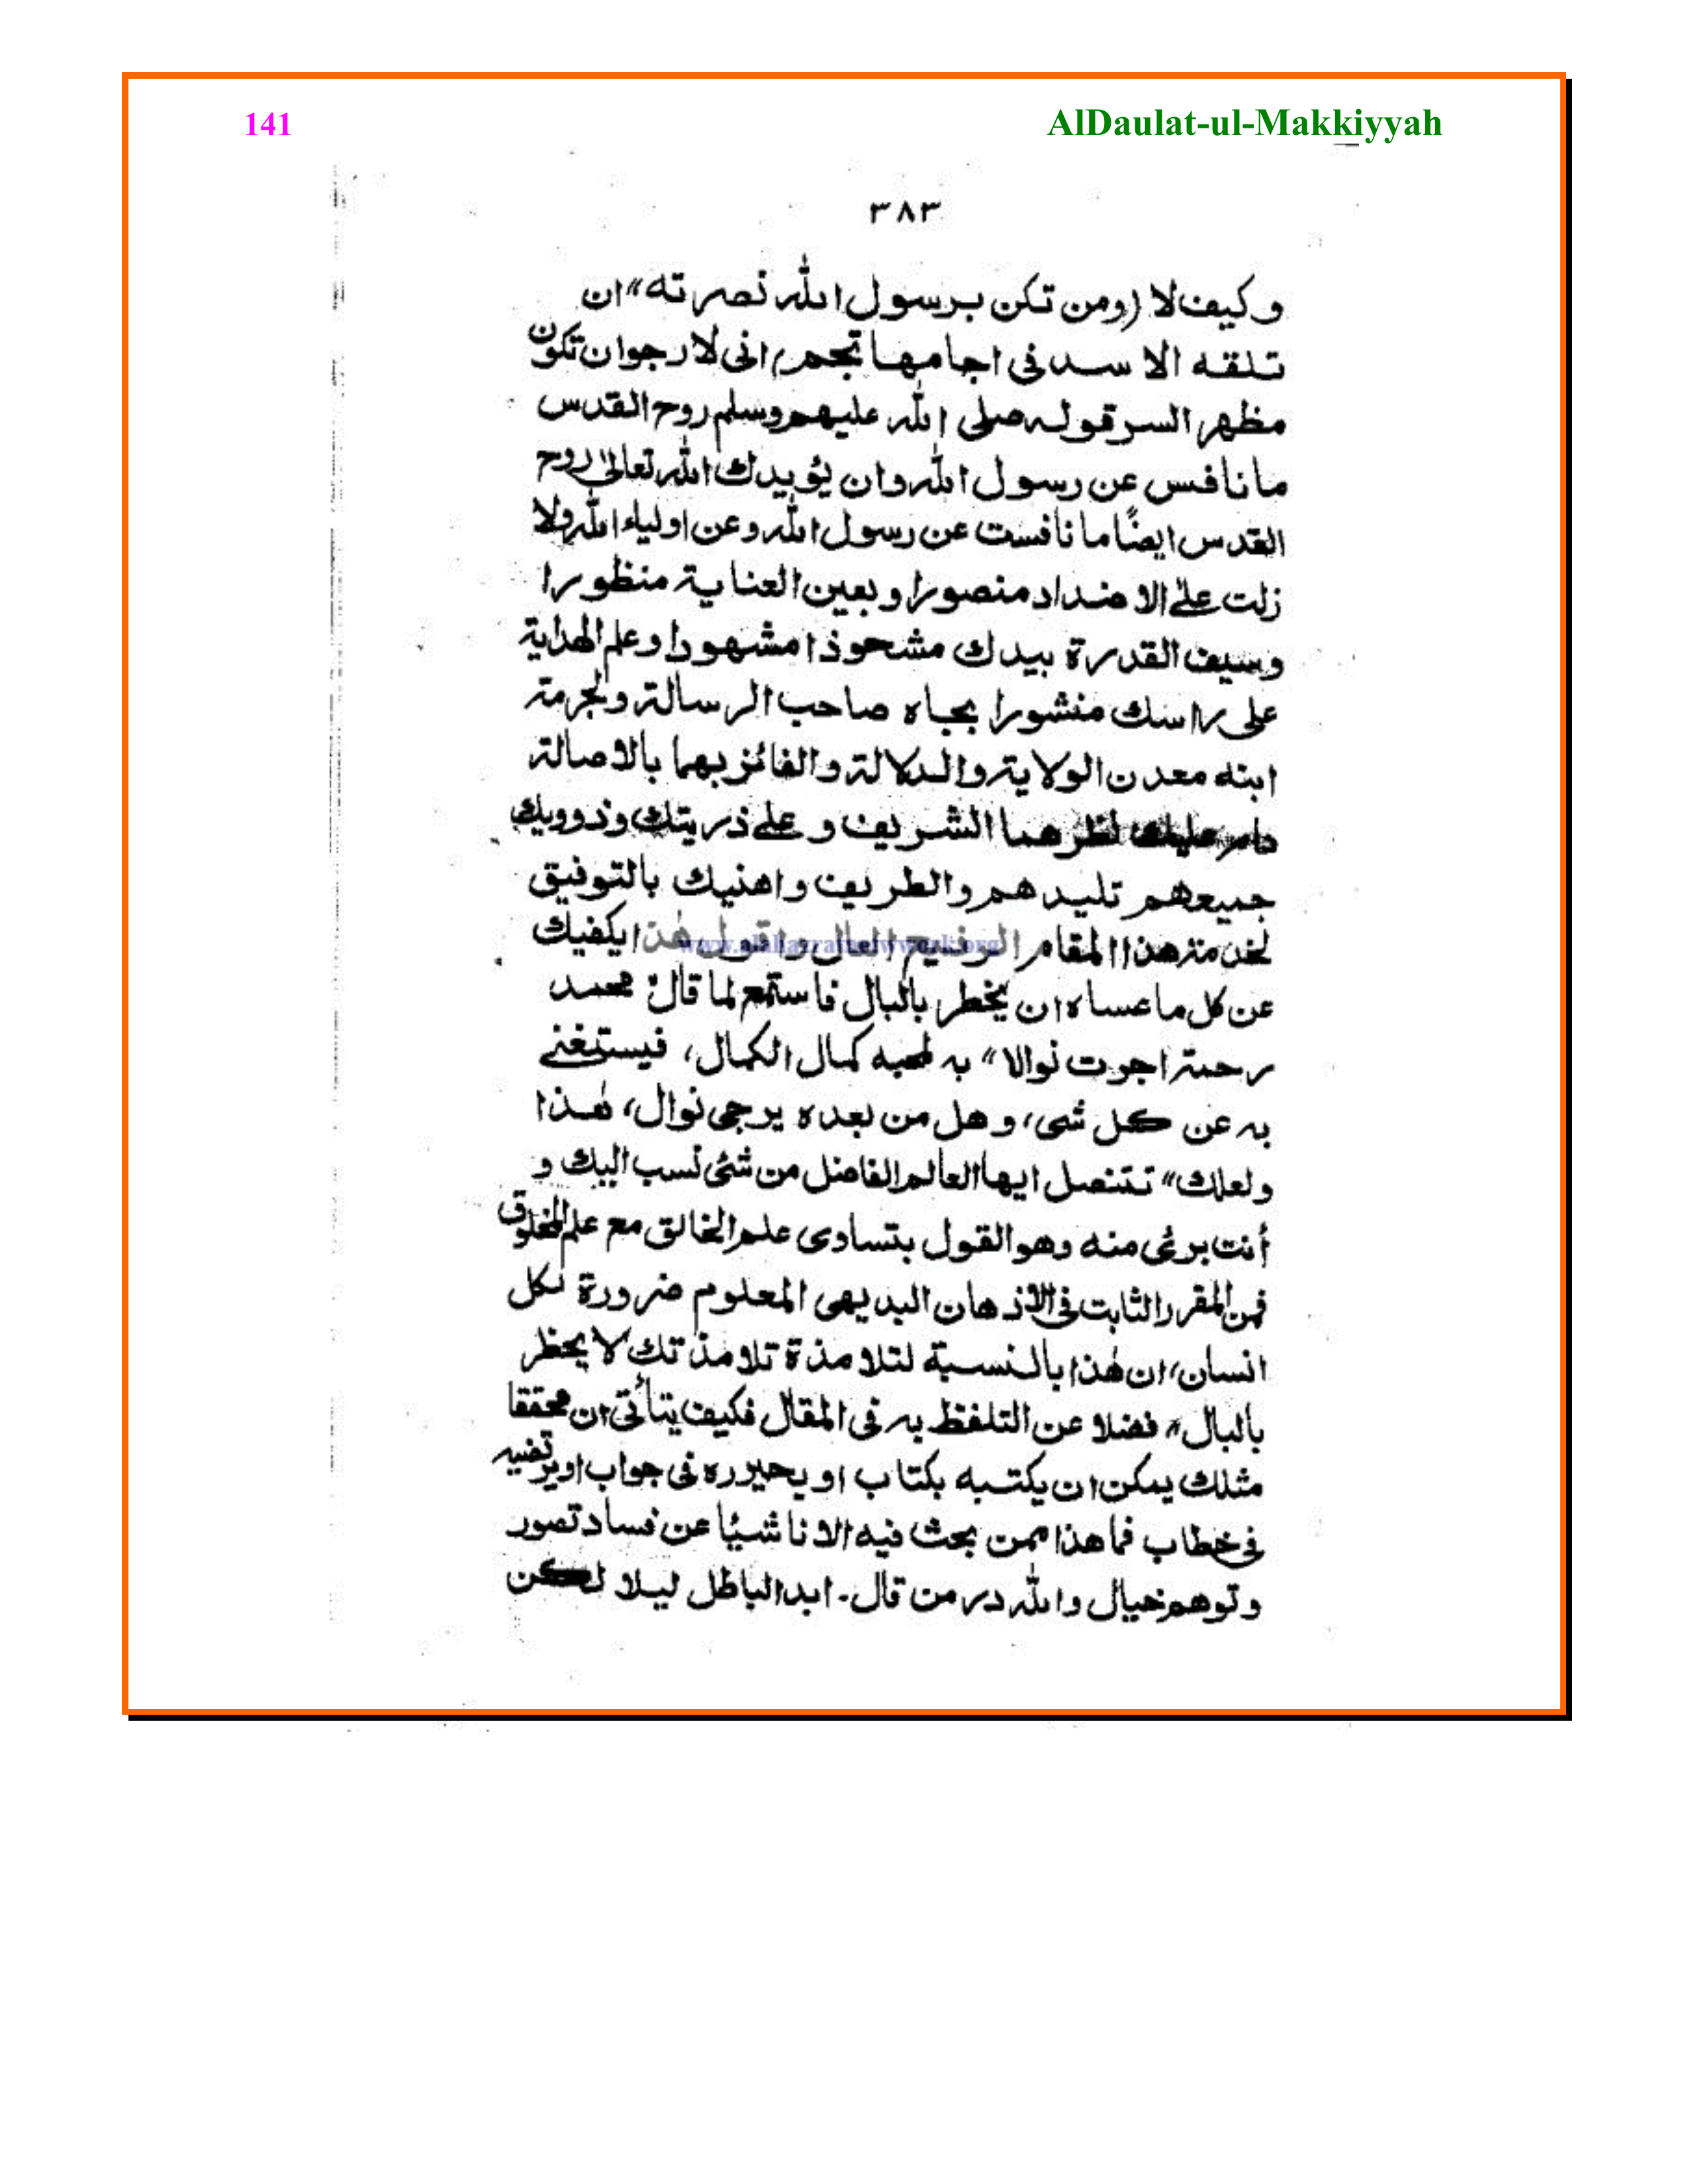 141 AlDaulat-ul-Makkiyyah
٣٨٣
وكيف لا (ومن تكن برسول الله نصرته» ان
تلقه الاسد فى اجامها تجم) انى لارجو ان تكون
مظهر السر قوله صلى الله عليهم وسلم روح القدس
ما نافس عن رسول الله وان يؤيدك الله تعالىٰ روح
القدس ايضًا ما نافست عن رسول الله وعن اولياء الله ولا
زلت على الاضداد منصورا وبعين العناية منظورا
وسيف القدرة بيدك مشحوذا مشهودا وعلم الهداية
على راسك منشورا بجاه صاحب الرسالة ولحرمة
ابنه معدن الولاية والدلالة والفائز بهما بالاصالة
دام عليك نظرهما الشريف وعلى ذريتك وذوويك
جميعهم تليدهم والطريف واهنيك بالتوفيق
لخدمة هذا المقام الرفيع العال واقول هٰذا يكفيك
www.alahazratnetwork.org
عن كل ما عساه ان يخطر بالبال فاستمع لما قال محمد
رحمة اجرت نوالا» به لمحبه كمال الكمال، فيستغنى
به عن كل شى، وهل من بعده يرجى نوال، هٰذا
ولعلك» تتنصل ايها العالم الفاضل من شئى نسب اليك و
أنت برئى منه وهو القول بتساوى علم الخالق مع علم المخلوق
فمن المقرر الثابت فى الاذهان البديهى المعلوم ضرورة لكل
انسان، ان هٰذا بالنسبة لتلامذة تلامذتك لا يخطر
بالبال» فضلا عن التلفظ به فى المقال فكيف يتأتى ان محققا
مثلك يمكن ان يكتبه بكتاب او يحيرره فى جواب او يرتضيه
فى خطاب فما هذا ممن بحث فيه الا ناشئيا عن فساد تصور
وتوهم خيال والله در من قال۔ ابد الباطل ليلا لكن